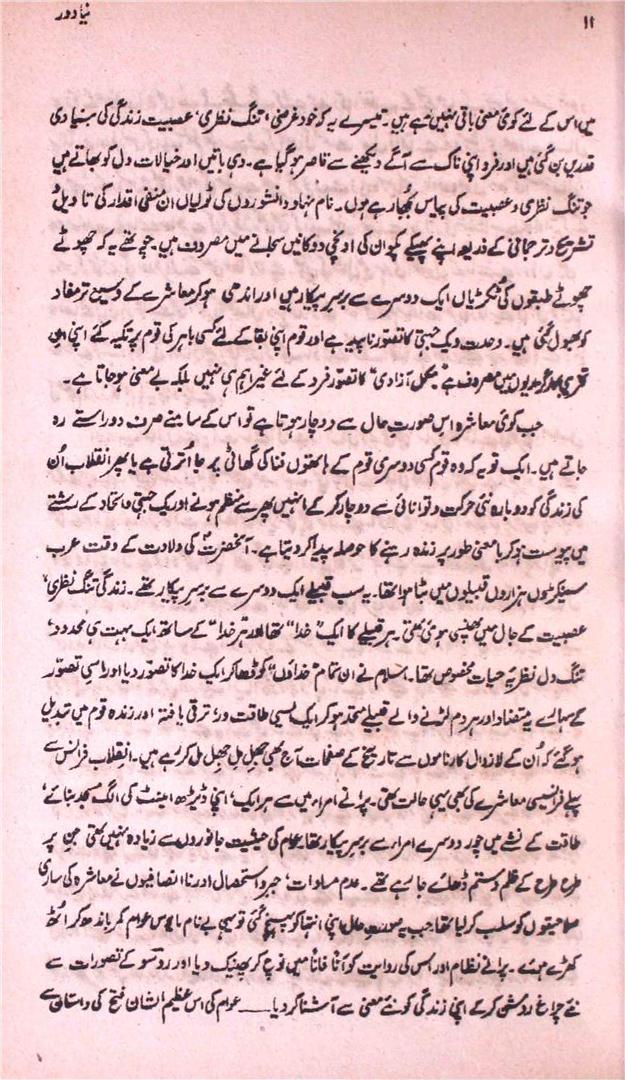 ۱۱
نیا دور
میں اس کے لئے کوئی معنی باقی نہیں رہے ہیں۔ تیسرے یہ کہ خود غرضی، تنگ نظری، عصبیت زندگی کی بنیادی
قدریں بن گئی ہیں اور فرد اپنی ناک سے آگے دیکھنے سے قاصر ہو گیا ہے۔ وہی باتیں اور خیالات دل کو بھاتے ہیں
جو تنگ نظری و عصبیت کی پیاس بجھا رہے ہوں۔ نام نہاد دانشوروں کی ٹولیاں ان منفی اقدار کی تاویل
تشریح و ترجمانی کے ذریعہ اپنے پھیکے پکوان کی اونچی دوکانیں سجانے میں مصروف ہیں۔ چوتھے یہ کہ چھوٹے
چھوٹے طبقوں کی ٹکڑیاں ایک دوسرے سے برسرِ پیکار ہیں اور اندھی ہو کر معاشرے کے وسیع تر مفاد
کو بھول گئی ہیں۔ وحدت و یک جہتی کا تصور ناپید ہے اور قوم اپنی بقا کے لئے کسی باہر کی قوم پر تکیہ کئے اپنی
میں مصروف ہے "مکمل آزادی" کا تصور فرد کے لئے غیر اہم ہی نہیں بلکہ بے معنی ہو جاتا ہے۔
جب کوئی معاشرہ اس صورتِ حال سے دوچار ہوتا ہے تو اس کے سامنے صرف دو راستے رہ
جاتے ہیں۔ ایک تو یہ کہ وہ قوم کسی دوسری قوم کے ہاتھوں فنا کی گھاٹی پر جا اُترتی ہے یا پھر انقلاب اُن
کی زندگی کو دوبارہ نئی حرکت و توانائی سے دوچار کر کے انہیں پھر سے منظم ہونے اور یک جہتی و اتحاد کے رشتے
میں پیوست ہو کر بامعنی طور پر زندہ رہنے کا حوصلہ پیدا کر دیتا ہے۔ آنحضرتؐ کی ولادت کے وقت عرب
سینکڑوں ہزاروں قبیلوں میں بٹا ہوا تھا۔ یہ سب قبیلے ایک دوسرے سے برسرِ پیکار تھے۔ زندگی تنگ نظری،
عصبیت کے جال میں پھنسی ہوئی تھی۔ ہر قبیلے کا ایک "خدا" تھا اور ہر "خدا" کے ساتھ ایک بہت ہی محدود،
تنگ دل نظریۂ حیات مخصوص تھا۔ اسلام نے ان تمام "خداؤں" کو ڈھا کر ایک خدا کا تصور دیا اور اسی تصور
کے سہارے یہ متضاد اور ہر دم لڑنے والے قبیلے متحد ہو کر ایک ایسی طاقت ور، ترقی یافتہ اور زندہ قوم میں تبدیل
ہو گئے کہ اُن کے لازوال کارناموں سے تاریخ کے صفحات آج بھی جھِل مِل جھِل مِل کر رہے ہیں۔ انقلابِ فرانس سے
پہلے فرانسیسی معاشرے کی بھی یہی حالت تھی۔ پرانے امراء میں سے ہر ایک، اپنی ڈیڑھ اینٹ کی الگ مسجد بنائے،
طاقت کے نشے میں چور دوسرے امراء سے برسرِ پیکار تھا۔ عوام کی حیثیت جانوروں سے زیادہ نہیں تھی جن پر
طرح طرح کے ظلم و ستم ڈھائے جا رہے تھے۔ عدم مساوات، جبر و استحصال اور ناانصافیوں نے معاشرہ کی ساری
صلاحیتوں کو سلب کر لیا تھا۔ جب یہ صورتِ حال اپنی انتہا کو پہنچ گئی تو یہی بے نام مایوس عوام کمر باندھ کر اُٹھ
کھڑے ہوئے۔ پرانے نظام اور اس کی روایت کو آناً فاناً میں نوچ کر پھینک دیا اور روسو کے تصورات سے
نئے چراغ روشن کر کے اپنی زندگی کو نئے معنی سے آشنا کر دیا ـــــ عوام کی اس عظیم الشان فتح کی داستان سے